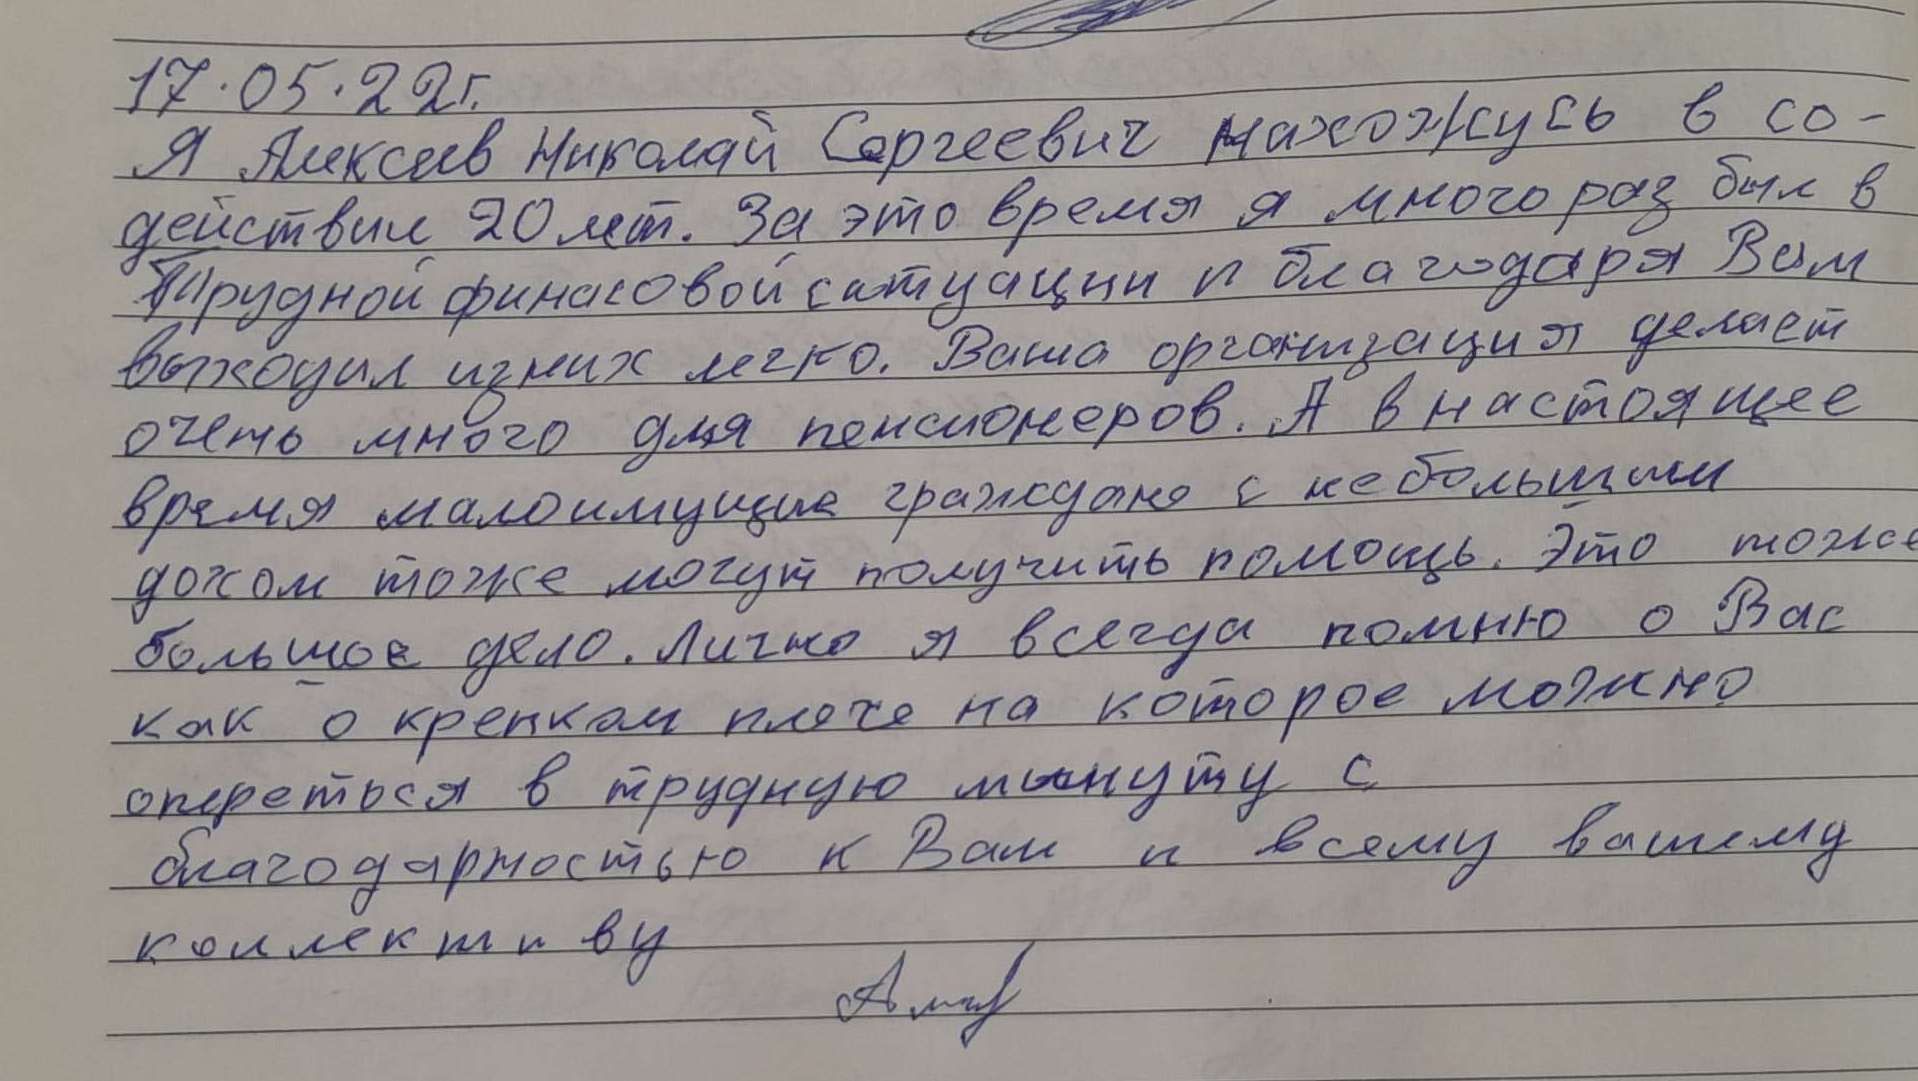 17.05.22г.
Я Алексеев Николай Сергеевич нахожусь в со-
действии 20 лет. За это время я много раз был в
трудной финасовой ситуации и благодаря Вам
выходил из них легко. Ваша организация делает
очень много для пенсионеров. А в настоящее
время малоимущие граждане с небольшим
дохом тоже могут получить помощь. Это тоже
большое дело. Лично я всегда помню о Вас
как о крепком плече на которое можно
опереться в трудную минуту с
благодарностью к Вам и всему вашему
коллективу